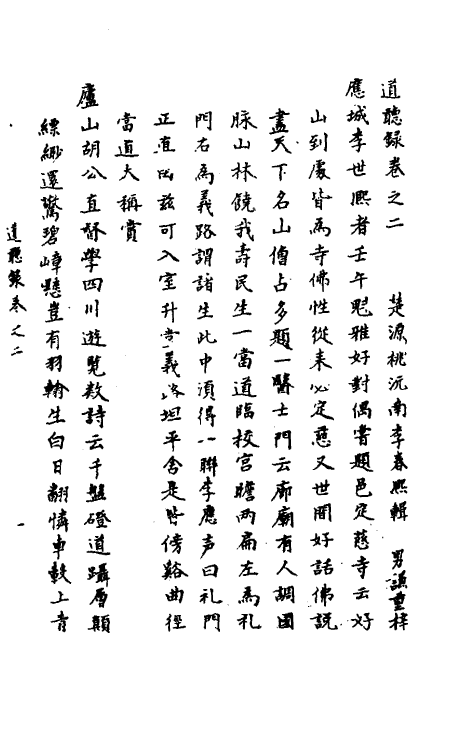 道聽録卷之二　楚源桃沅南李春熙輯　男謙重梓
應城李世熙者壬午魁雅好對偶嘗題邑定慈寺云好
山到處皆為寺佛性從来必定慈又世間好話佛説
盡天下名山僧占多題一醫士門云廊廟有人調國
脉山林饒我壽民生一當道臨校宮瞻兩扁左為礼
門右為義路謂諸生此中須得一聯李應声曰礼門
正直由兹可入室升堂義路坦平舍是皆傍谿曲徑
當道大稱賞
廬山胡公直督學四川遊覽数詩云千盤磴道躡層顛
縹緲還驚碧嶂懸豈有羽翰生白日翻憐車轂上青
道聽录卷之二　一